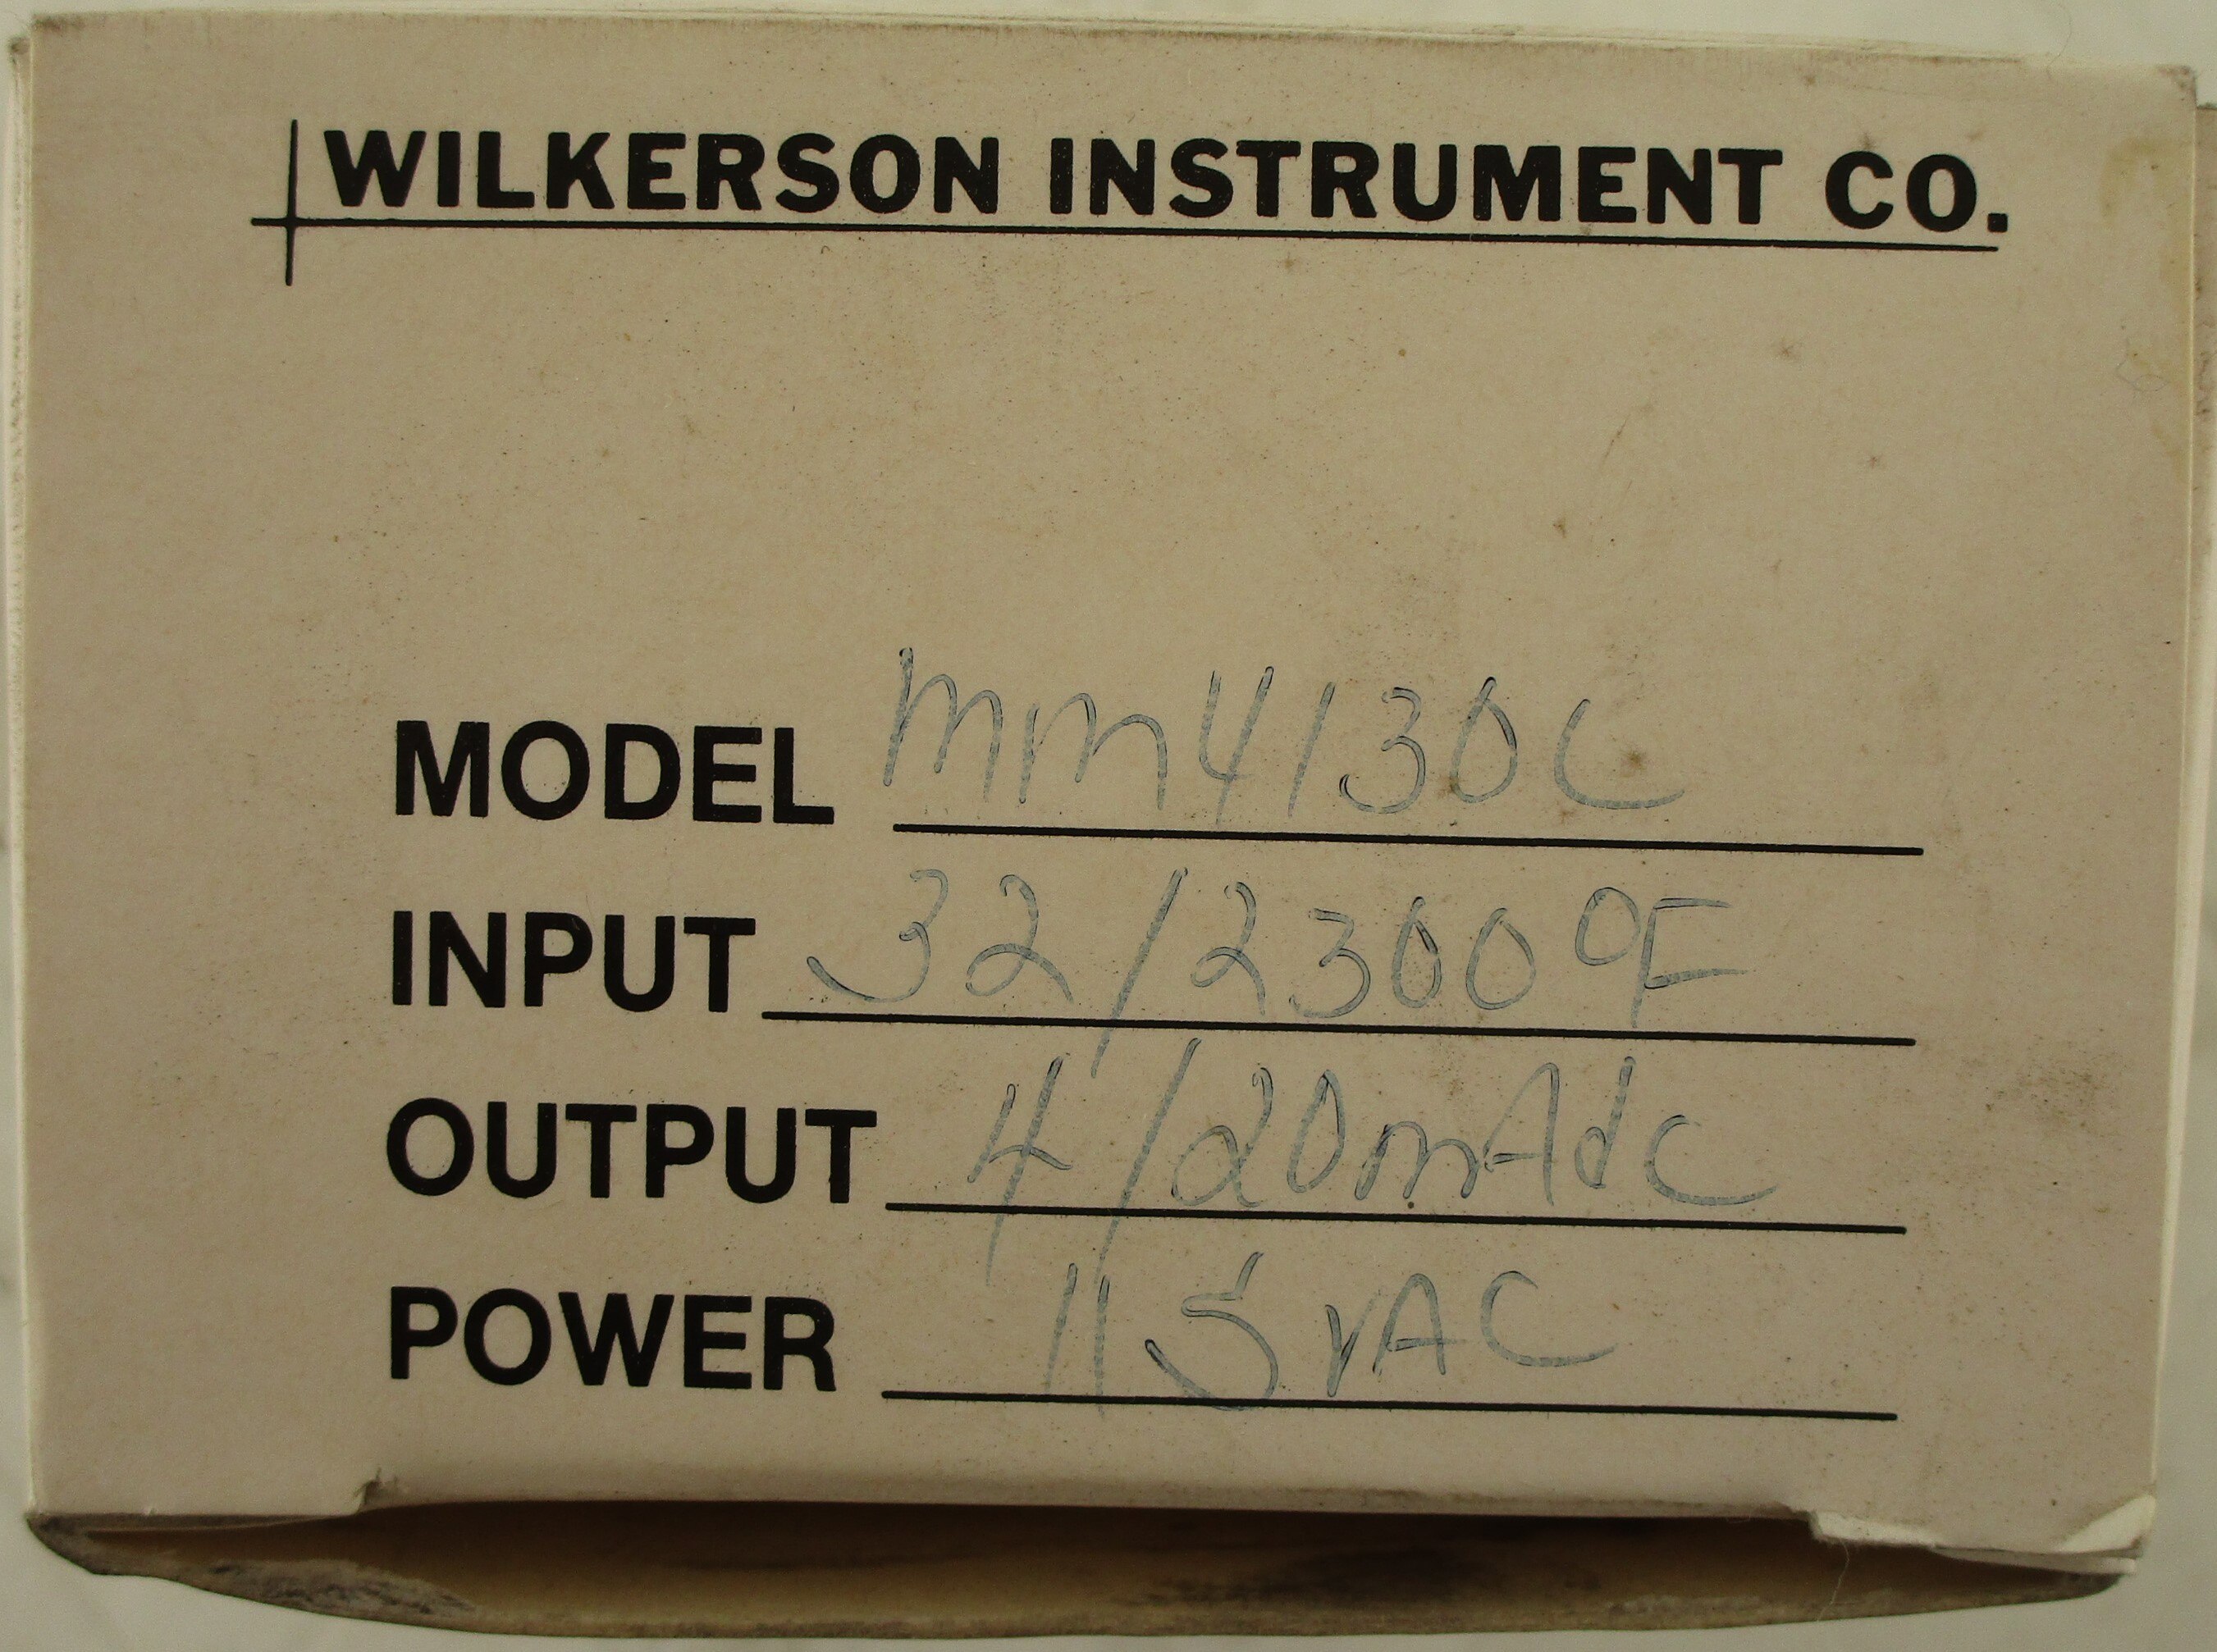 WILKERSON INSTRUMENT CO.
MODEL mm4130C
INPUT 32/2300°F
OUTPUT 4/20mAdc
POWER 115 VAC